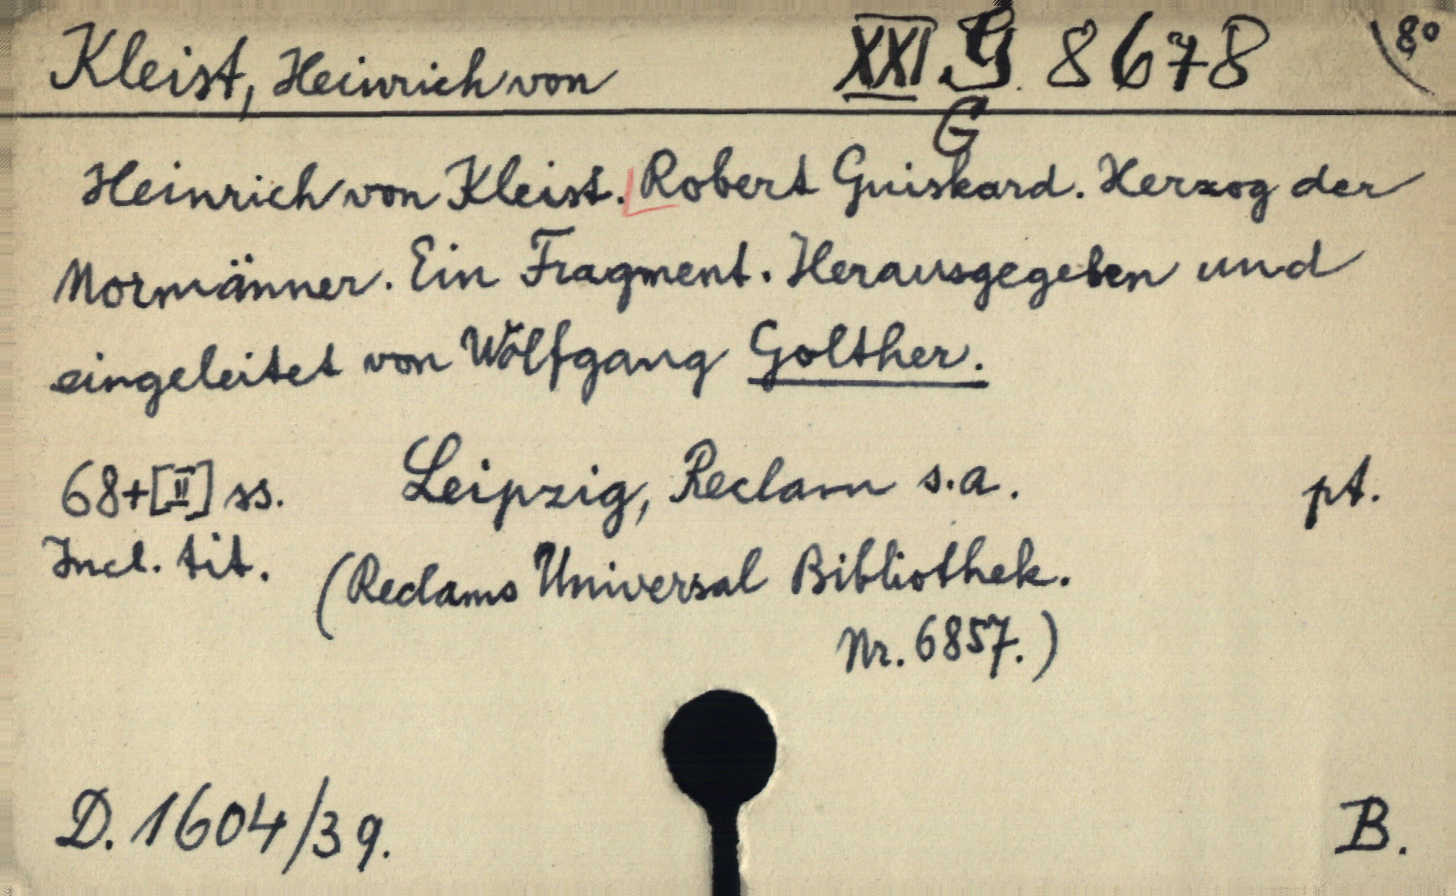 Kleist, Heinrich von XXI G 8678 8°
G
Heinrich von Kleist. Robert Guiskard. Herzog der
Normänner. Ein Fragment. Herausgegeben und
eingeleitet von Wolfgang Golther.
68+[II] ss. Leipzig, Reclam s.a. pt.
Incl. tit. (Reclams Universal Bibliothek.
Nr. 6857.)
D. 1604/39. B.